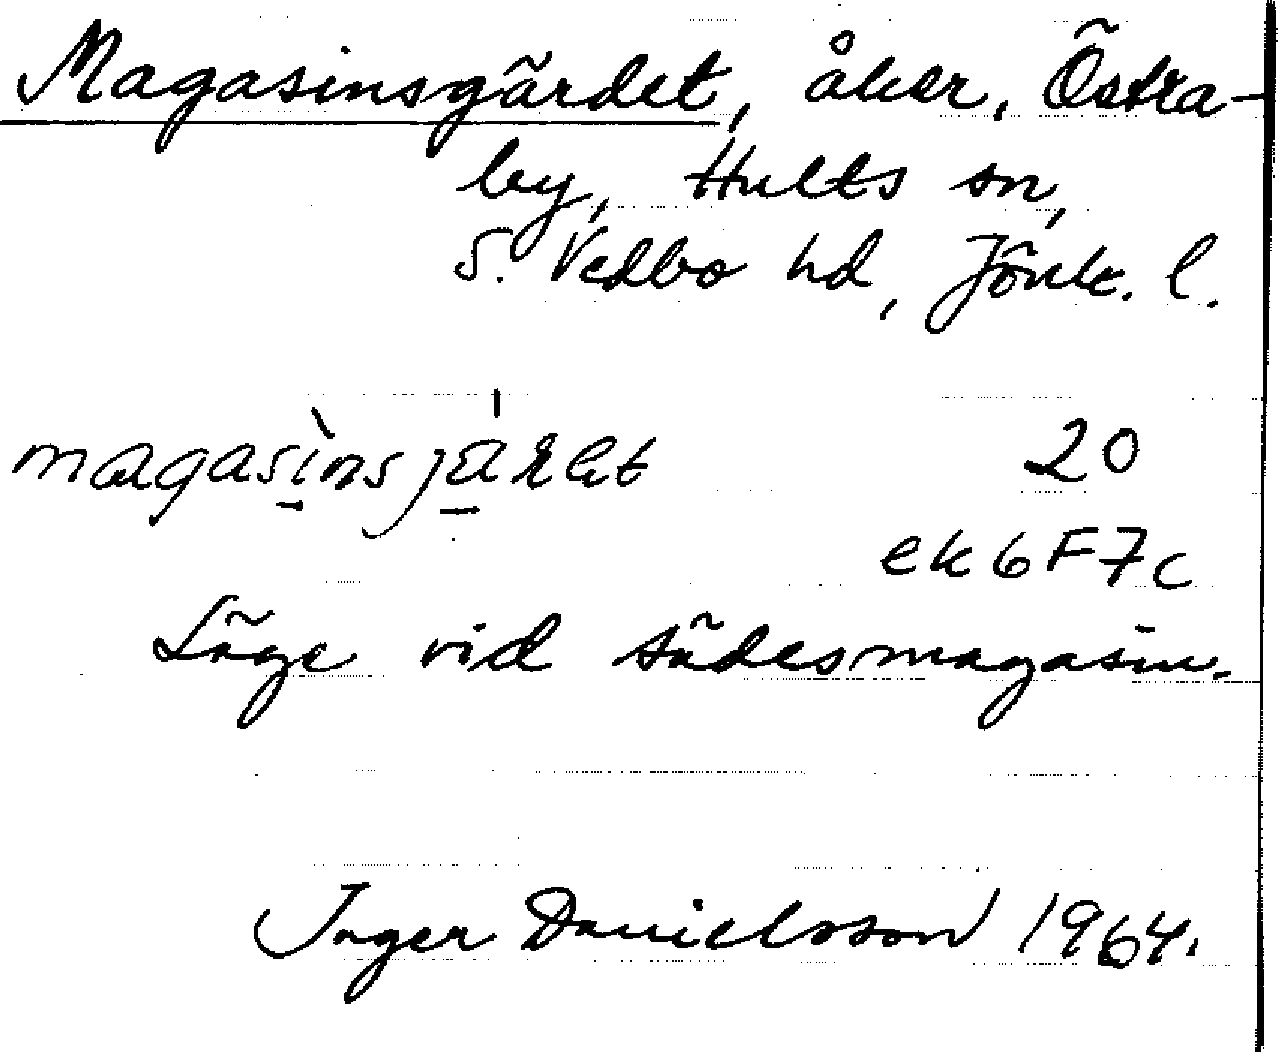 Magasinsgärdet, åker, Östra-
by, Hults sn,
S. Vedbo hd, Jönk. l.
20
ek 6F7c
Läge vid sädesmagasin.
Inger Danielsson 1964.